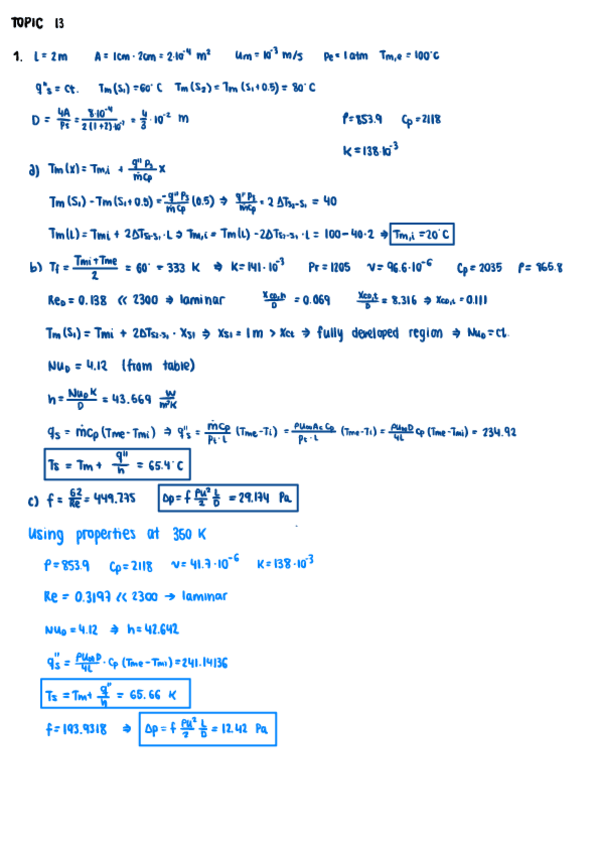 TOPIC 13
1. L = 2m A = 1cm · 2cm = 2·10⁻⁴ m² um = 10⁻³ m/s Pe = 1 atm Tm,e = 100°C
q"s = ct. Tm(S1) = 60°C Tm(S2) = Tm(S1+0.5) = 80°C
D = 4A/Ps = 8·10⁻⁴/2(1+2)·10⁻² = 4/3 ·10⁻² m ρ=853.9 Cp=2118
K=138·10⁻³
a) Tm(x) = Tmi + q"Ps/ṁCp x
Tm(S1) - Tm(S1+0.5) = -q"Ps/ṁCp (0.5) ⇒ q"Ps/ṁCp = 2 ΔTs2-s1 = 40
Tm(L) = Tmi + 2ΔTs2-s1 · L ⇒ Tm,i = Tm(L) - 2ΔTs2-s1 · L = 100-40·2 ⇒ Tm,i = 20°C
b) Tf = Tmi+Tme/2 = 60° = 333 K ⇒ K=141·10⁻³ Pr = 1205 ν= 96.6·10⁻⁶ Cp = 2035 ρ= 865.8
ReD = 0.138 << 2300 ⇒ laminar Xcd,h/D = 0.069 Xcd,t/D = 8.316 ⇒ Xcd,t = 0.111
Tm(S1) = Tmi + 2ΔTs2-s1 · Xs1 ⇒ Xs1 = 1m > Xct ⇒ fully developed region ⇒ NuD = ct.
NuD = 4.12 (from table)
h = NuD K/D = 43.669 W/m²K
qs = ṁCp (Tme-Tmi) ⇒ q"s = ṁCp/Pt·L (Tme-Ti) = ρUmAcCp/Pt·L (Tme-Ti) = ρUmD/4L Cp (Tme-Tmi) = 234.92
Ts = Tm + q"/h = 65.4°C
c) f = 62/Re = 449.275 Δp = f ρU²/2 L/D = 29.174 Pa
Using properties at 350 K
ρ=853.9 Cp=2118 ν= 41.7·10⁻⁶ K=138·10⁻³
Re = 0.3197 << 2300 → laminar
NuD = 4.12 ⇒ h=42.642
q"s = ρUmD/4L · Cp (Tme-Tmi) = 241.14136
Ts = Tm + q"/h = 65.66 K
f=193.9318 ⇒ Δp = f ρU²/2 L/D = 12.42 Pa